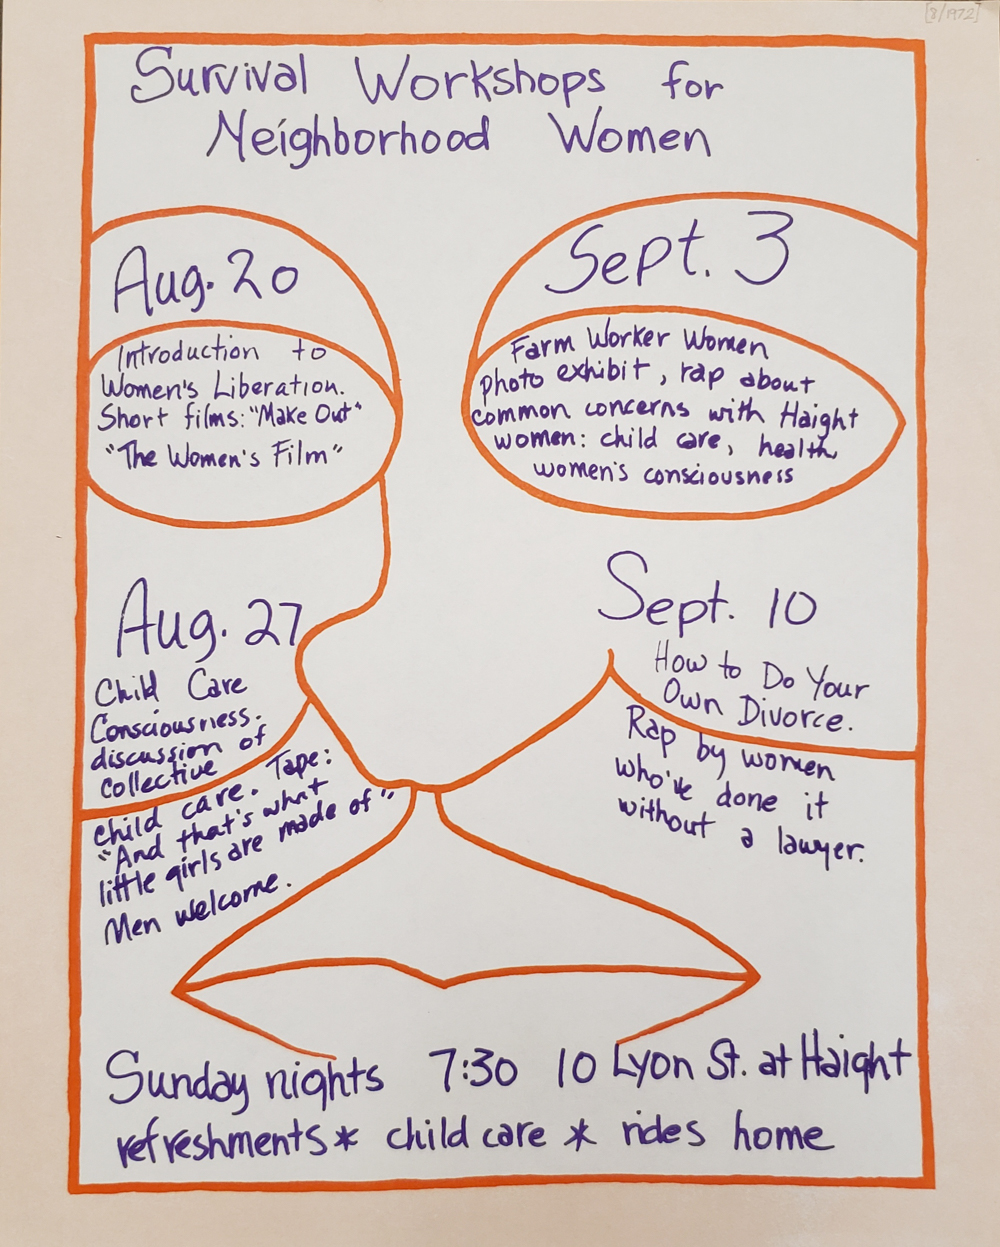 [8/1972]
Survival Workshops for
Neighborhood Women
Aug. 20
Introduction to
Women's Liberation.
Short films: "Make Out"
"The Women's Film"
Sept. 3
Farm Worker Women
photo exhibit, rap about
common concerns with Haight
women: child care, health,
women's consciousness
Aug. 27
Child Care
Consciousness.
discussion of
collective
child care. Tape:
"And that's what
little girls are made of"
Men welcome.
Sept. 10
How to Do Your
Own Divorce.
Rap by women
who've done it
without a lawyer.
Sunday nights 7:30 10 Lyon St. at Haight
refreshments * child care * rides home